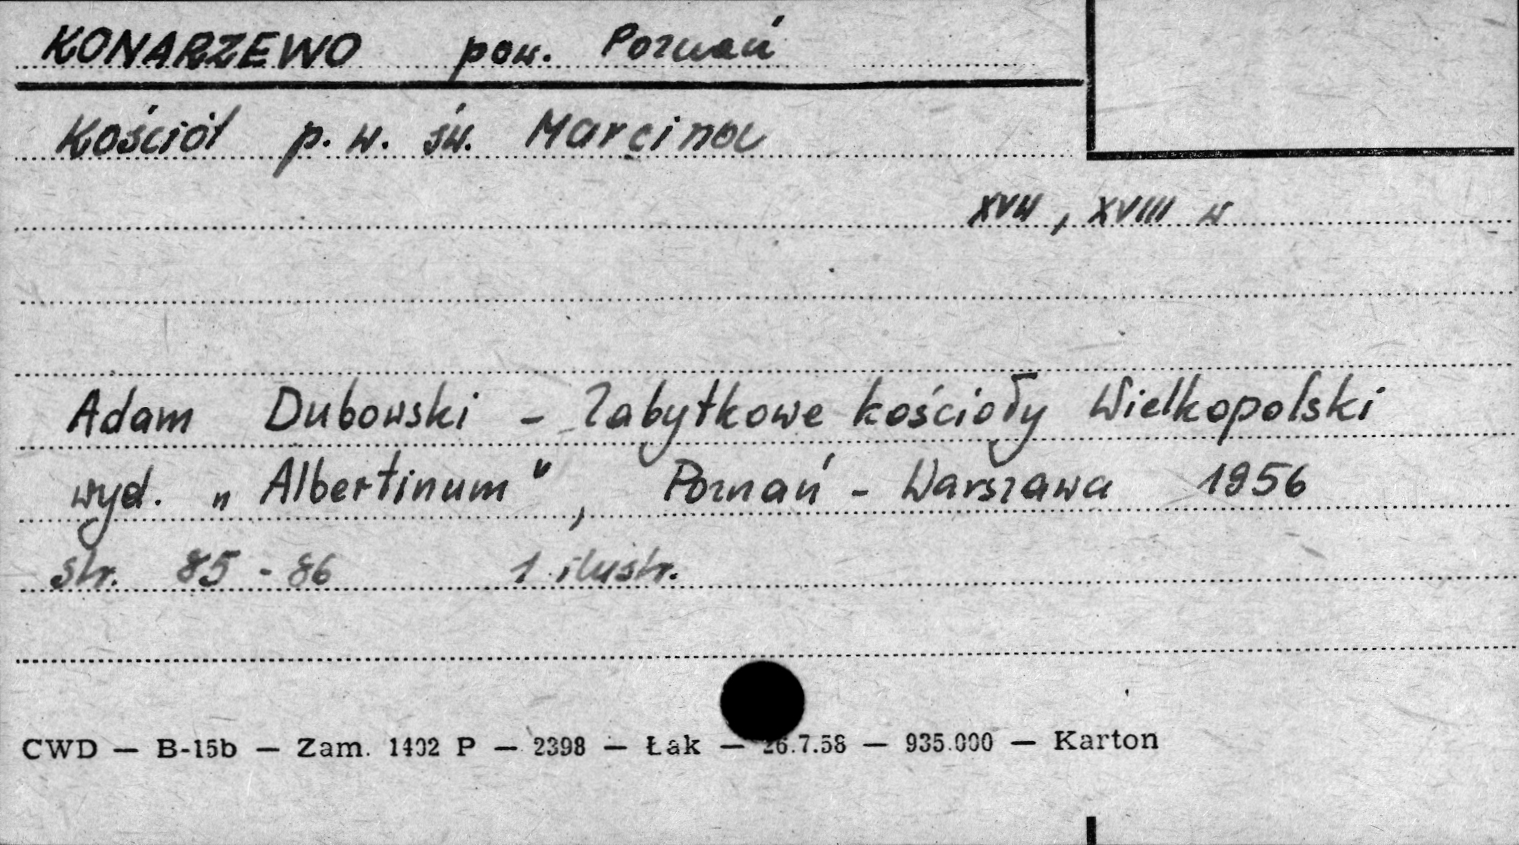 KONARZEWO pow. Poznań
Kościół p. w. św. Marcina
XVII, XVIII w
Adam Dubowski - Zabytkowe kościoły Wielkopolski
wyd. „Albertinum", Poznań - Warszawa 1956
str. 85 - 86 1 ilustr.
CWD — B-15b — Zam. 1402 P — 2398 — Łak — 26.7.58 — 935.000 — Karton